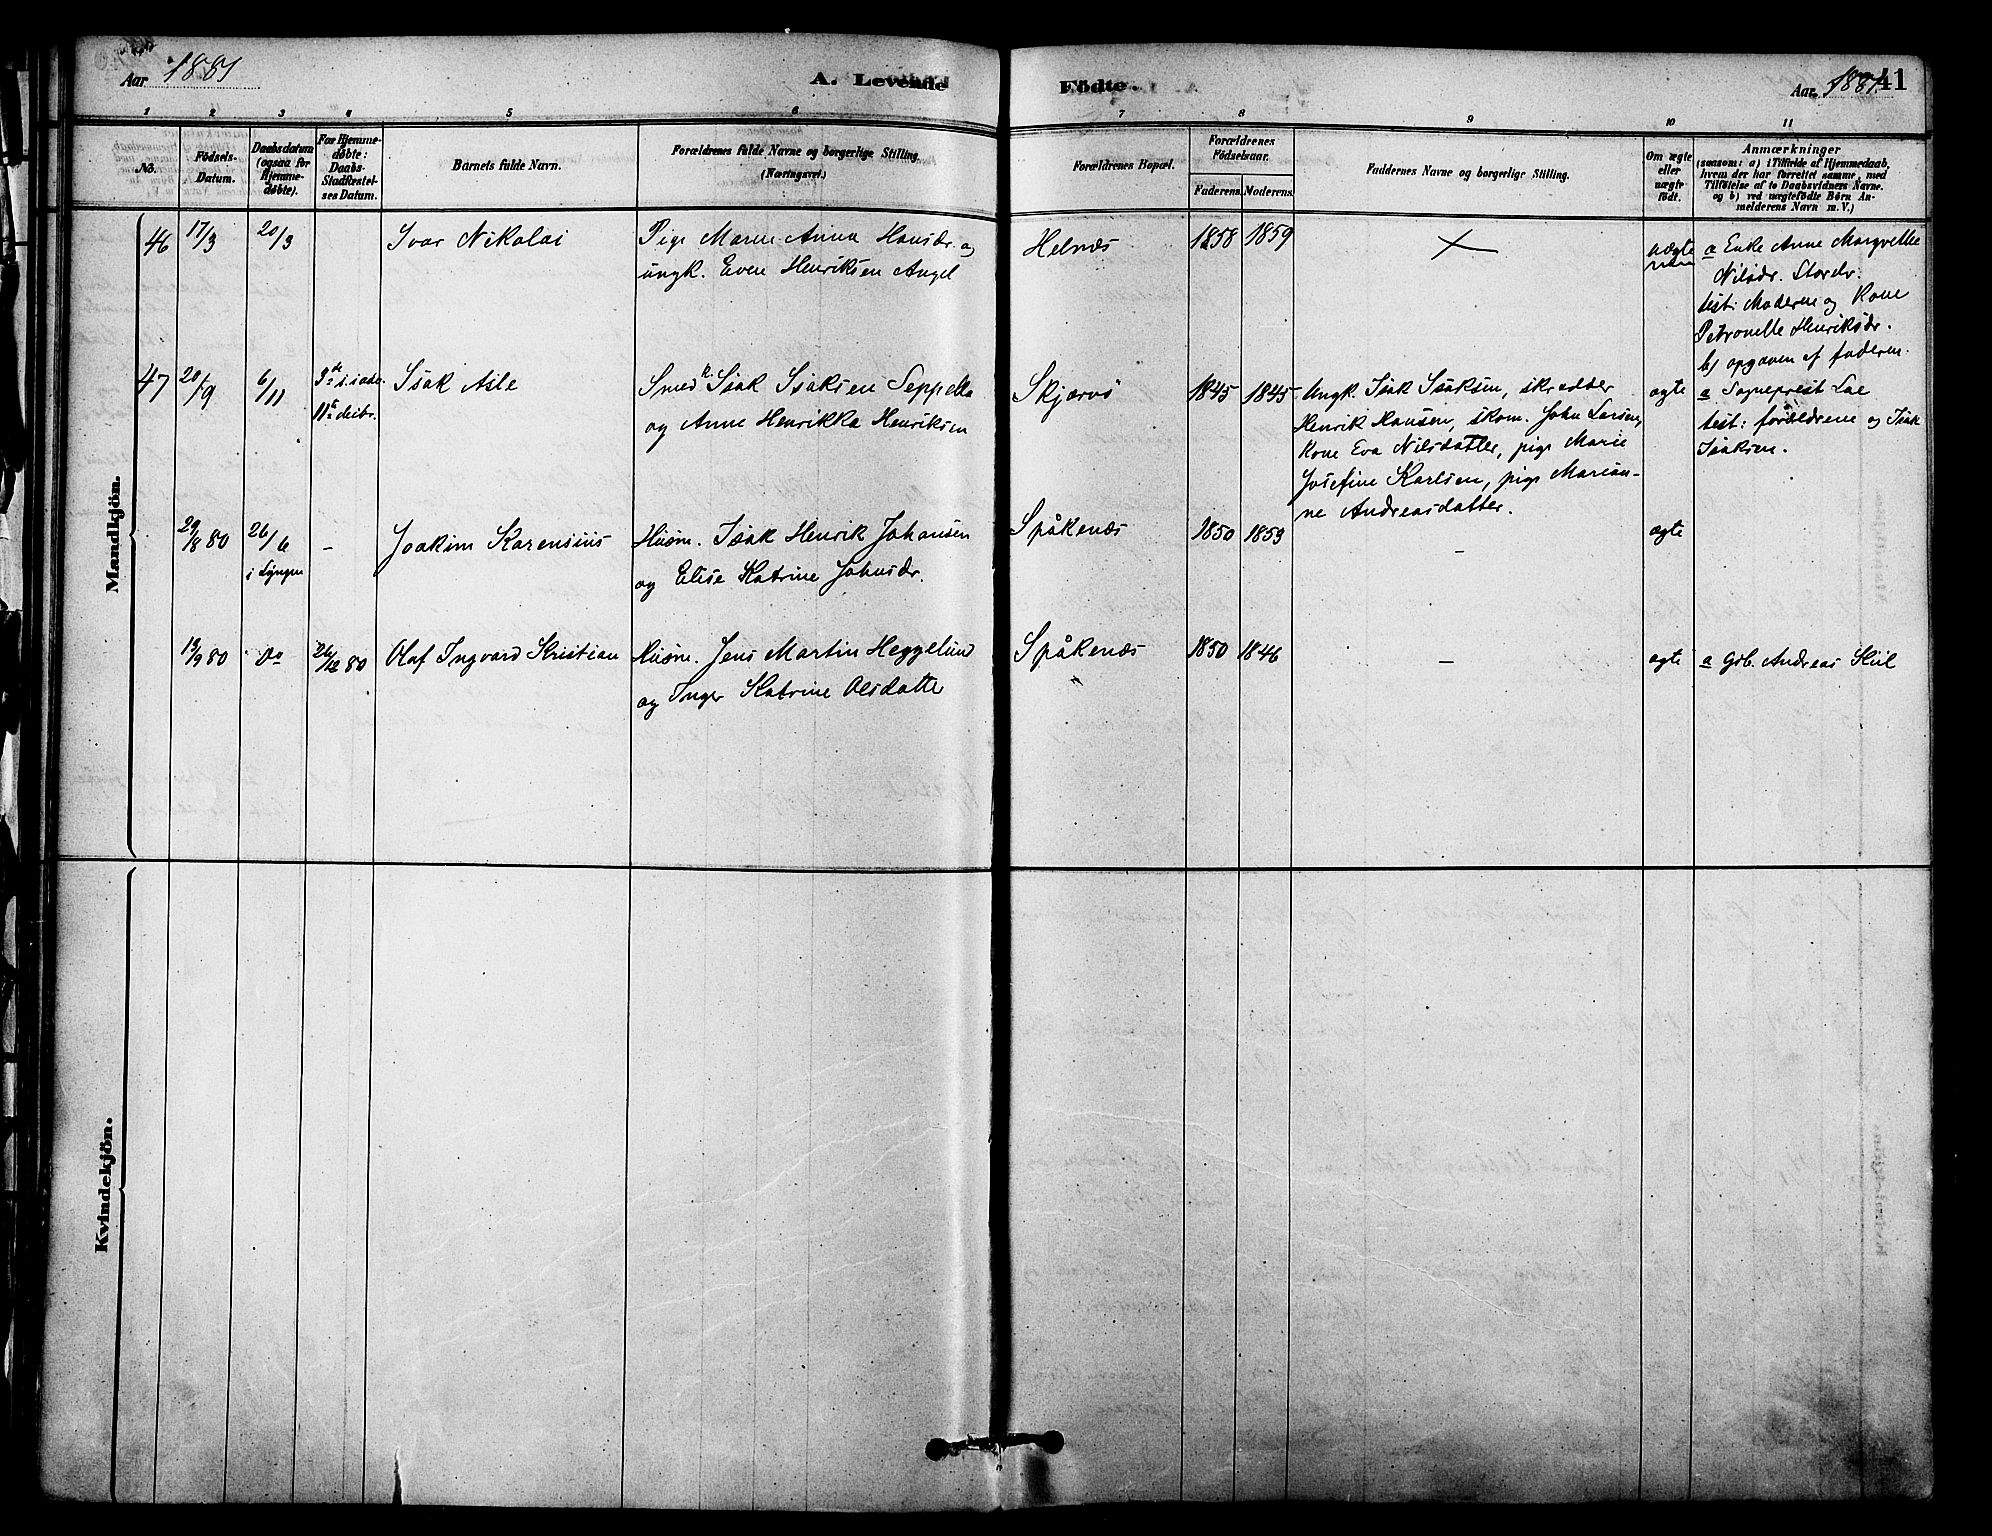 Aar 1881
A. Levende
Födte.
Aar 1881.
41
1 2 3 4 5 6 7 8 9 10 11
No.
Födsels-
Datum.
Daabsdatum
(ogsaa for
Hjemme-
døbte).
For Hjemme-
døbte:
Daabs-
Stadfæstel-
ses Datum.
Barnets fulde Navn.
Forældrenes fulde Navne og borgerlige Stilling.
(Næringsvei.)
Forældrenes Bopæl.
Forældrenes
Födselsaar.
Faderens.
Moderens.
Faddernes Navne og borgerlige Stilling.
Om ægte
eller
uægte
født.
Anmærkninger
(saasom: a) i Tilfælde af Hjemmedaab,
hvem der har forrettet samme, med
Tilföielse af to Daabsvidners Navne.
og b) ved uægtefödte Börn An-
melderens Navn m. V.)
Mandkjön.
46
17/3
20/3
Ivar Nikolai
Pige Maren Anna Hansdr. og
ungk. Even Henriksen Angel
Helnæs
1858
1859
uægte
a Enke Anne Margrethe
Nilsdr. Stordr.
test: Moderen og Kone
Petronelle Henriksdr.
b) opgaven af faderen.
47
20/9
6/11
11te decbr.
Isak Aile
Smed k. Isak Isaksen Seppella
og Anne Henrikka Henriksen
Skjærvö
1845
1845
Ungk. Isak Isaksen, skrædder
Henrik Hansen, skom. John Larsen,
Kone Eva Nilsdatter, pige Marie
Josefine Karlsen, pige Marian-
ne Andreasdatter.
ægte
a Sogneprest Lae
test: forældrene og Isak
Isaksen.
29/8 80
26/6
i Lyngen
-
Joakim Karensius
Husm. Isak Henrik Johansen
og Elise Katrine Johnsdr.
Spåkenæs
1850
1859
-
ægte
19/9 80
Do
26/12 80
Olaf Ingvard Kristian
Husm. Jens Martin Heggelund
og Inger Katrine Olsdatte
Spåkenæs
1850
1846
-
ægte
a Gsb. Andreas Kiil
Kvindekjön.